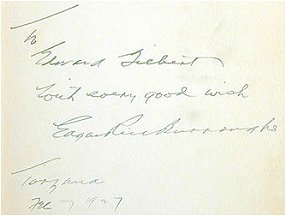 To
Edward Gilbert
With every good wish
Edgar Rice Burroughs
Tarzana
Feb 7 1927